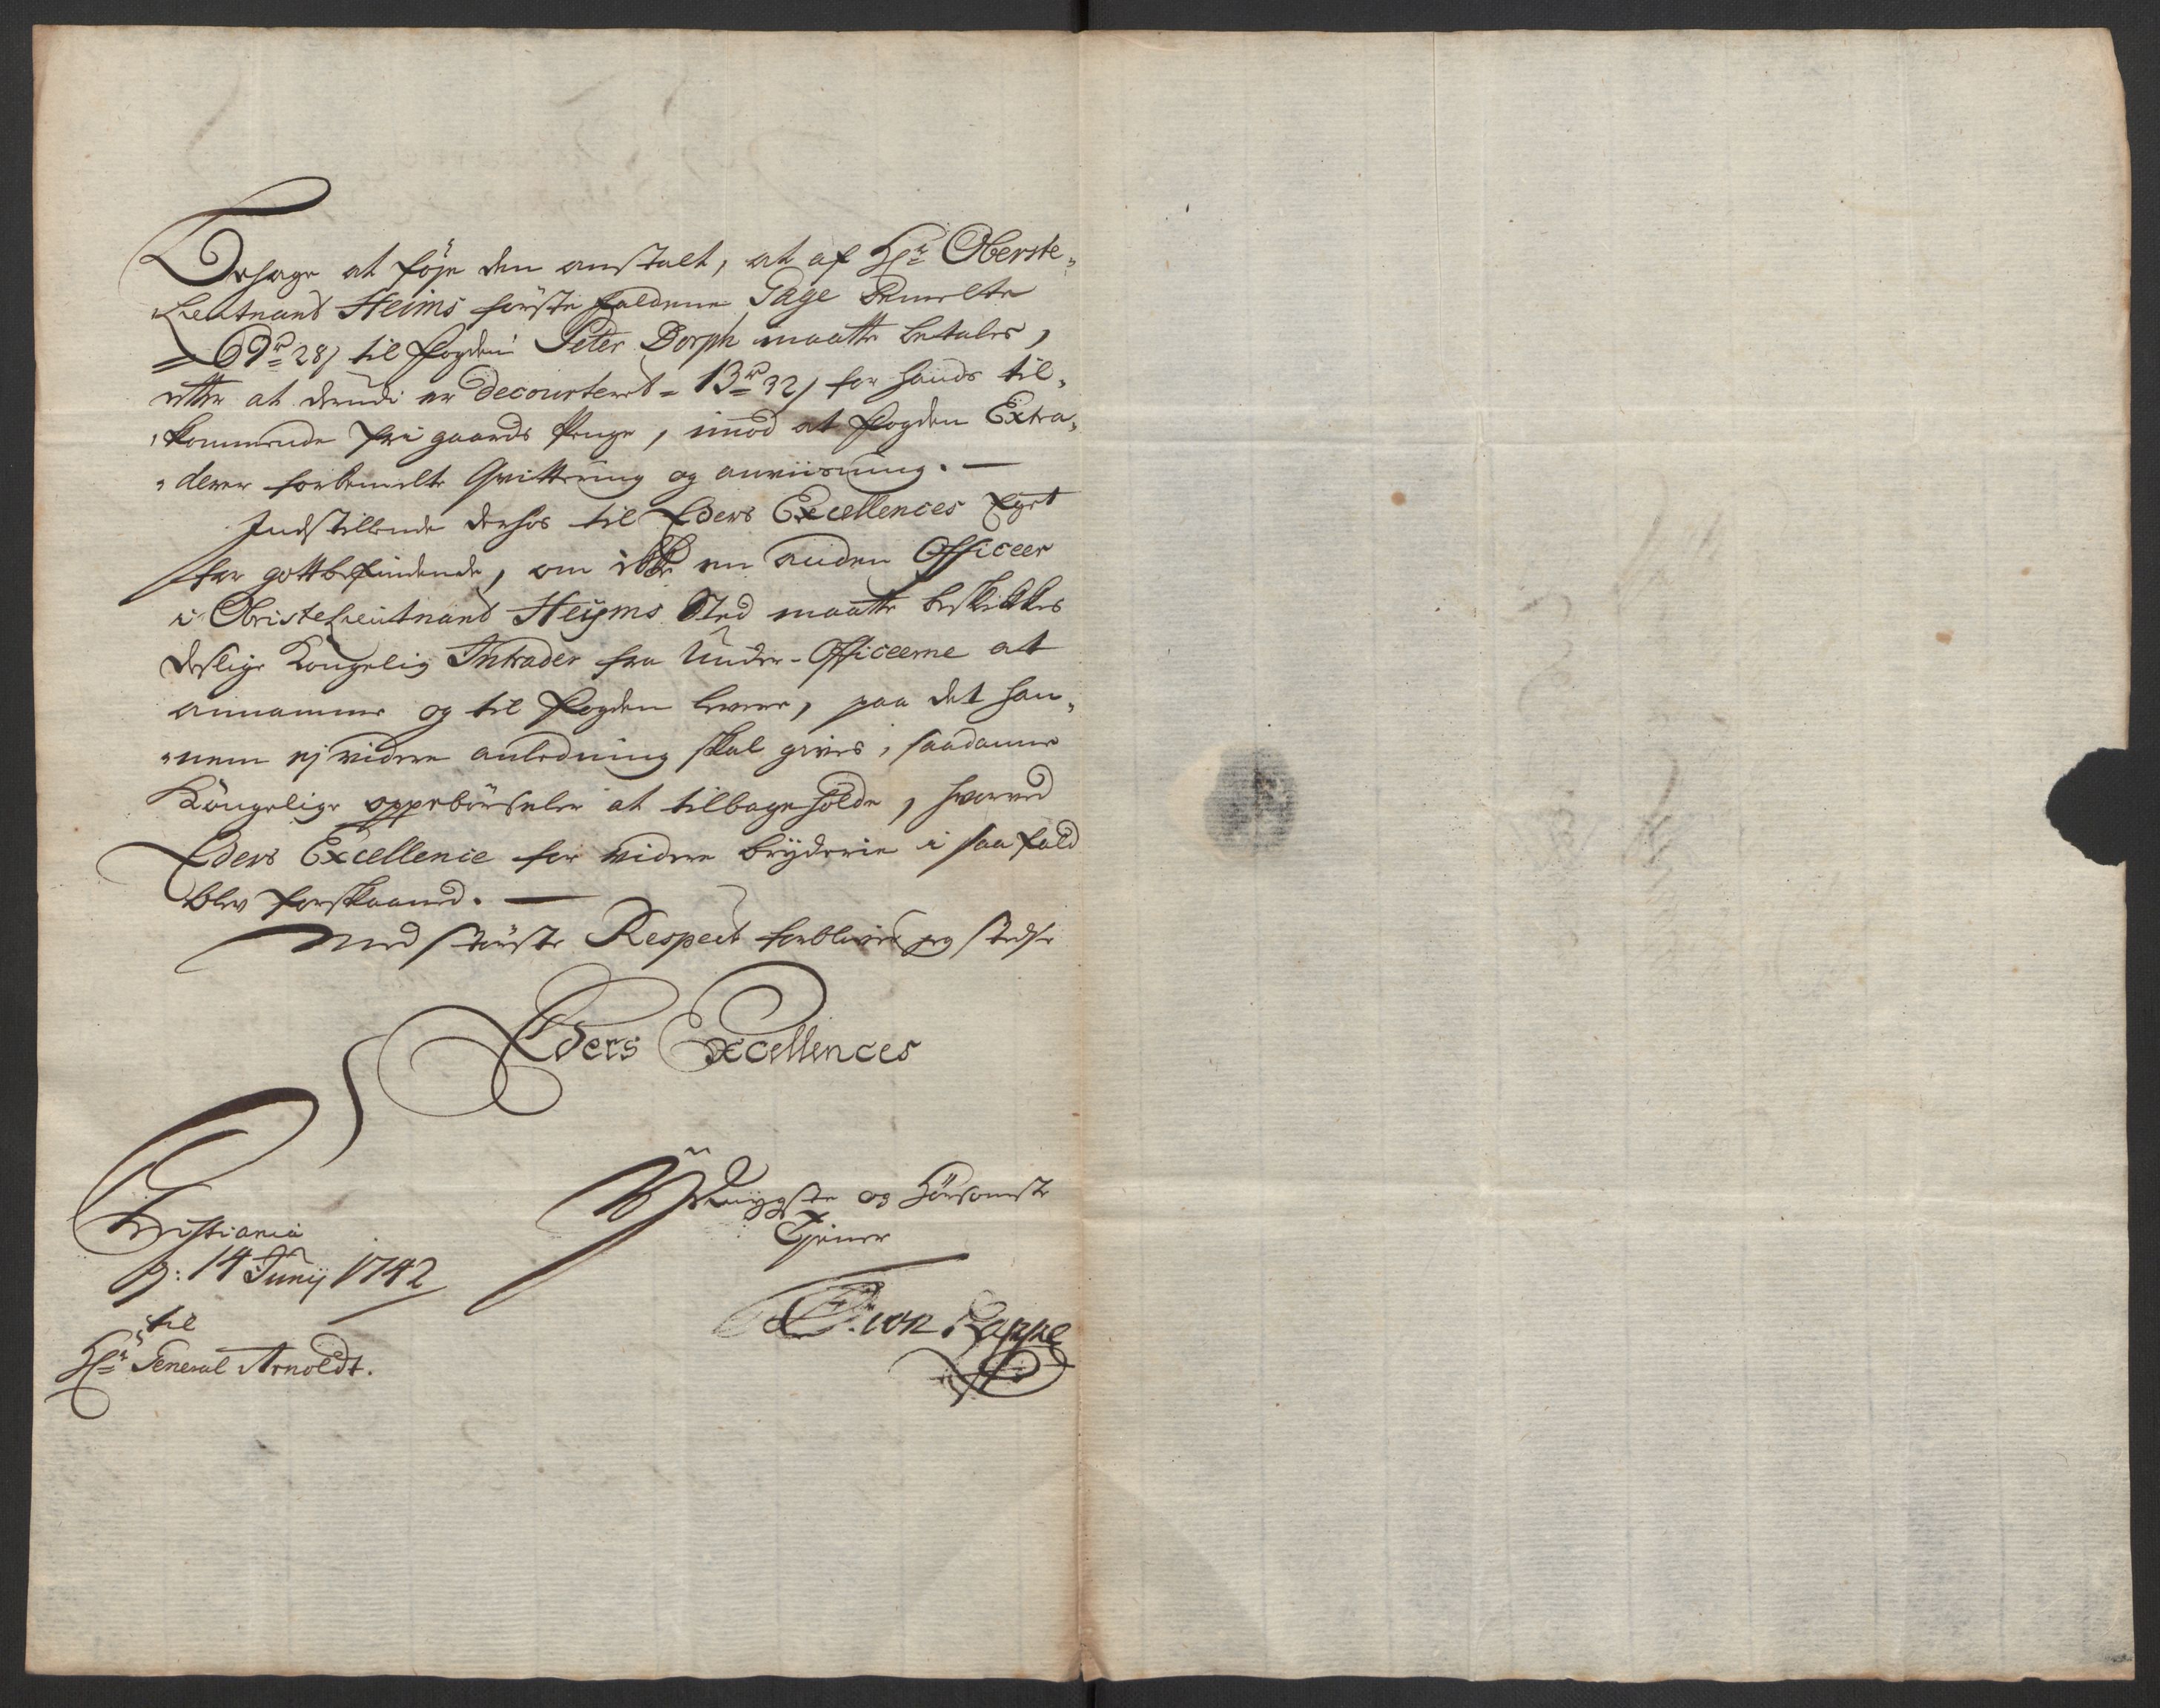 behage at föje den anstalt, at af Hr: Oberste„
„Lieutnant Heims förstefaldene Gage bemelte
= 69 rd 28 s til fogden Peter Dorph maatte betales,
efter at derudi er decourteret = 13 rd 32 s for hands til„
„kommende frigaards Penge, imod at fogden Extra„
„derer forbemelte Qvittering og anviisning. —
Indstillende derhos til Eders Excellences Eget
got befindende, om ikke en anden Officeer
i ObristeLieutnant Heijms Sted maatte beskikkes
deslige Kongelig Intrader fra Under-Officeerne at
annamme og til fogden levere, paa det han„
„nem ej videre anledning skal gives, saadanne
Kongelige oppebørseler at tilbageholde, hvorved
Eders Excellence for videre bryderie i saa fald
blev forskaaned. —
Med største Respect forbliver jeg stedse
Eders Excellences
Christiania
d: 14 Junij 1742
til
Hr: General Arnoldt.
Ydmygste og Hörsomste
Tjener
von Rappe